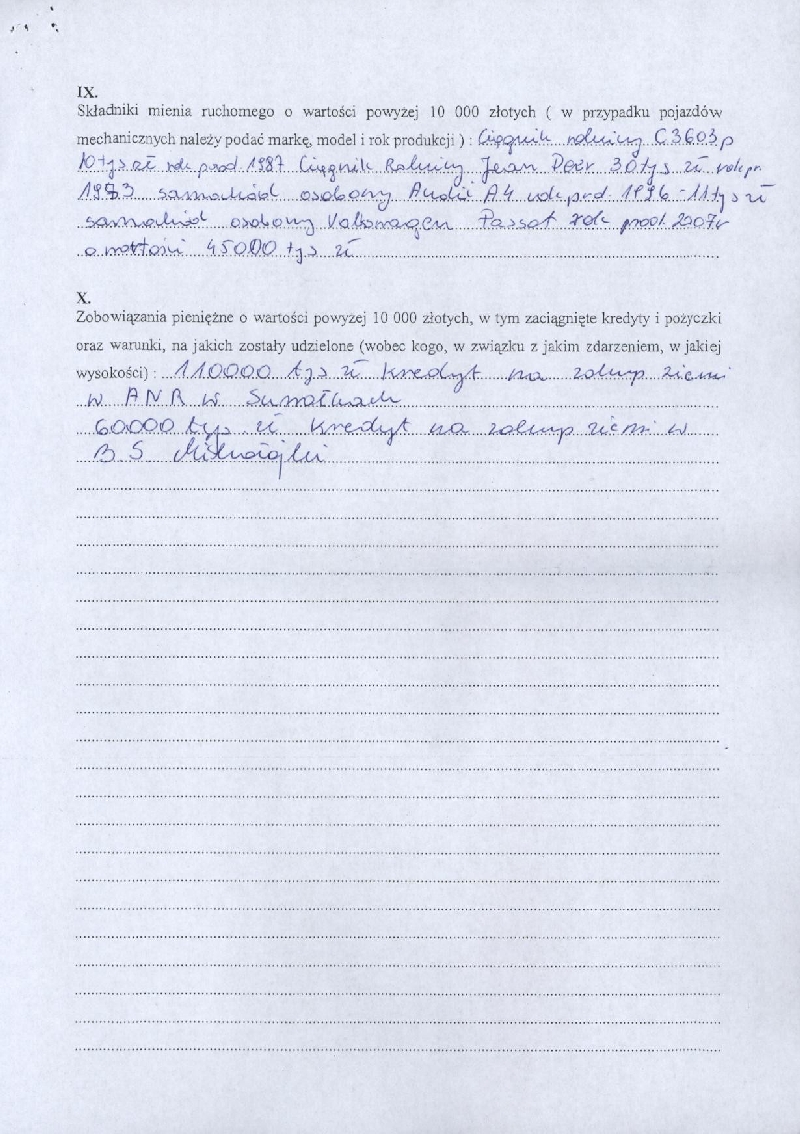 IX.
Składniki mienia ruchomego o wartości powyżej 10 000 złotych ( w przypadku pojazdów
mechanicznych należy podać markę, model i rok produkcji ) : Ciągnik rolniczy C3603p
10 tys zł rok prod 1987 Ciągnik Rolniczy Jean Deer 30 tys zł rok pr
1983 samochód osobowy Audii A4 rok prod. 1996 - 11 tys zł
samochód osobowy Volkswagen Passat rok prod. 2007r
o wartości 45000 tys zł
X.
Zobowiązania pieniężne o wartości powyżej 10 000 złotych, w tym zaciągnięte kredyty i pożyczki
oraz warunki, na jakich zostały udzielone (wobec kogo, w związku z jakim zdarzeniem, w jakiej
wysokości) : 110000 tys zł kredyt na zakup ziemi
w ANR w Suwałkach
60000 tys zł kredyt na zakup ziemi w
BS Mikołajki